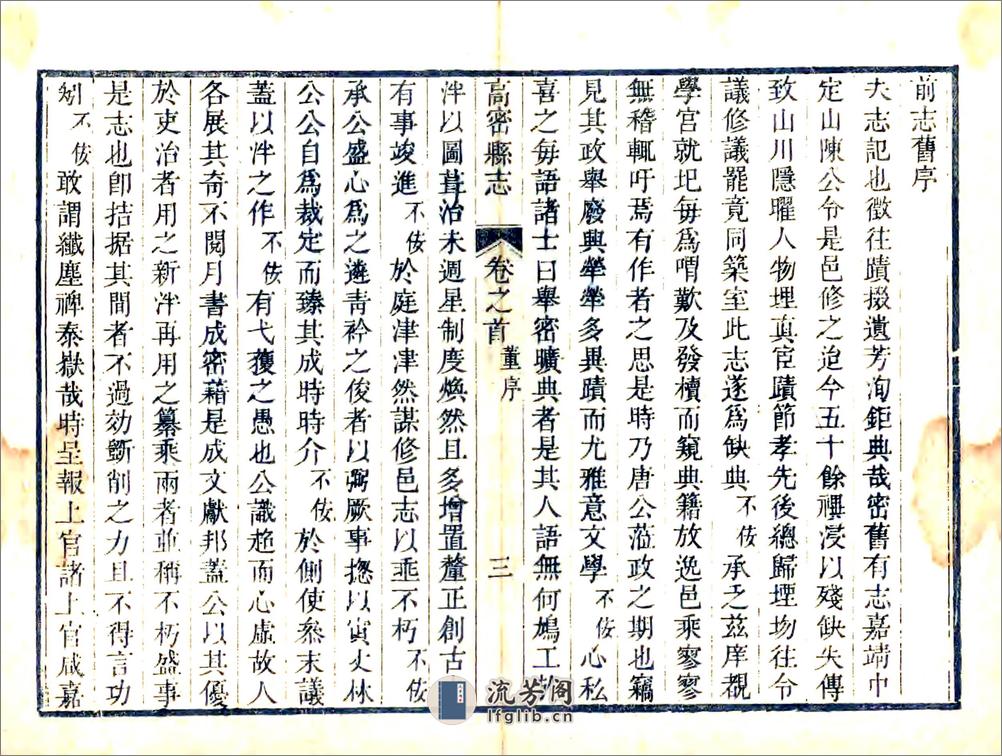 前志舊序
夫志記也徵往蹟掇遺芳洵鉅典哉密舊有志嘉靖中
定山陳公令是邑修之迨今五十餘禩浸以殘缺失傳
致山川隱曜人物埋真宦蹟節孝先後總歸堙圽往令
議修議罷竟同築室此志遂爲缺典不佞承乏茲庠覩
學宮就圮每爲喟歎及發櫝而窺典籍放逸邑乘寥寥
無稽輒吁焉有作者之思是時乃唐公蒞政之期也竊
見其政舉廢興犖犖多異蹟而尤雅意文學不佞心私
喜之每語諸士曰舉密曠典者是其人語無何鳩工
高密縣志 卷之首 董序 三
泮以圖葺治未週星制度煥然且多增置釐正創古
有事竣進不佞於庭津津然謀修邑志以垂不朽不佞
承公盛心爲之遴青衿之俊者以弼厥事揔以寅丈林
公公自爲裁定而臻其成時時介不佞於側使叅末議
蓋以泮之作不佞有弋獲之愚也公識趋而心虛故人
各展其奇不閱月書成密藉是成文獻邦蓋公以其優
於吏治者用之新泮再用之纂乘兩者並稱不朽盛事
是志也卽拮据其間者不過効斵削之力且不得言功
矧不佞敢謂纖塵裨泰嶽哉時呈報上官諸上官咸嘉
流芳阁
lfglib.cn